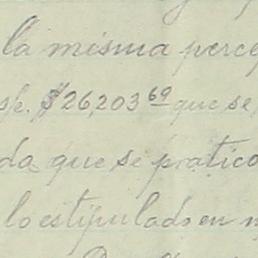 la misma perce
de. $26,203 69 que se
da que se practico
lo estipulado en